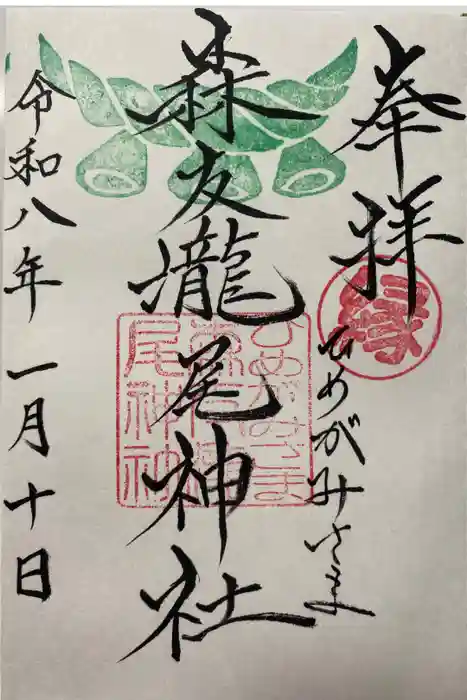 奉拝
ひめがみさま
森友瀧尾神社
令和八年一月十日
ひめがみさま
森友瀧
尾神社